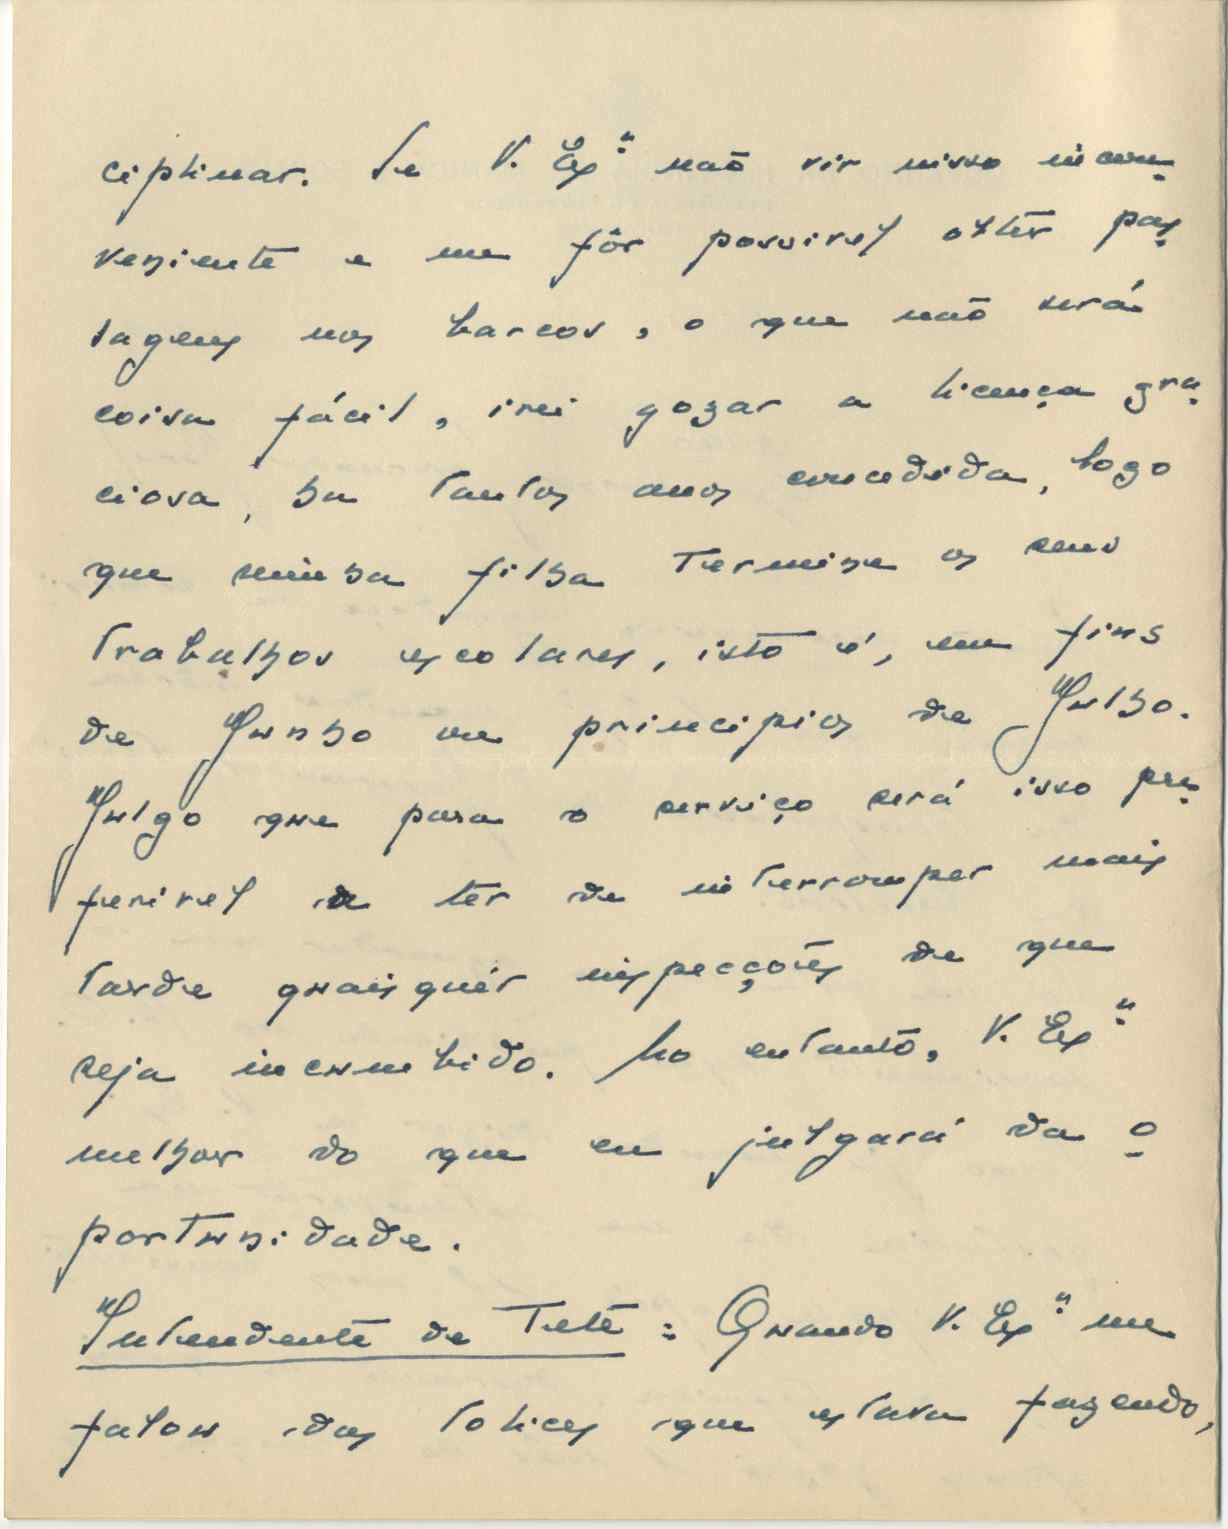 ciplinar. Se V. Exª não vir nisso incon-
veniente e me fôr possivel obter pas-
sagens nos barcos, o que não será
coisa fácil, irei gozar a licença gra-
ciosa, ha tantos anos concedida, logo
que minha filha termine os seus
trabalhos escolares, isto é, em fins
de Junho ou principios de Julho.
Julgo que para o serviço será isso pre-
ferivel a ter de interromper mais
tarde quaisquér inspecções de que
seja incumbido. No entanto, V. Exª
melhor do que eu julgará da o-
portunidade.
Intendente de Tete: Quando V. Exª me
falou das tolices que estava fazendo,